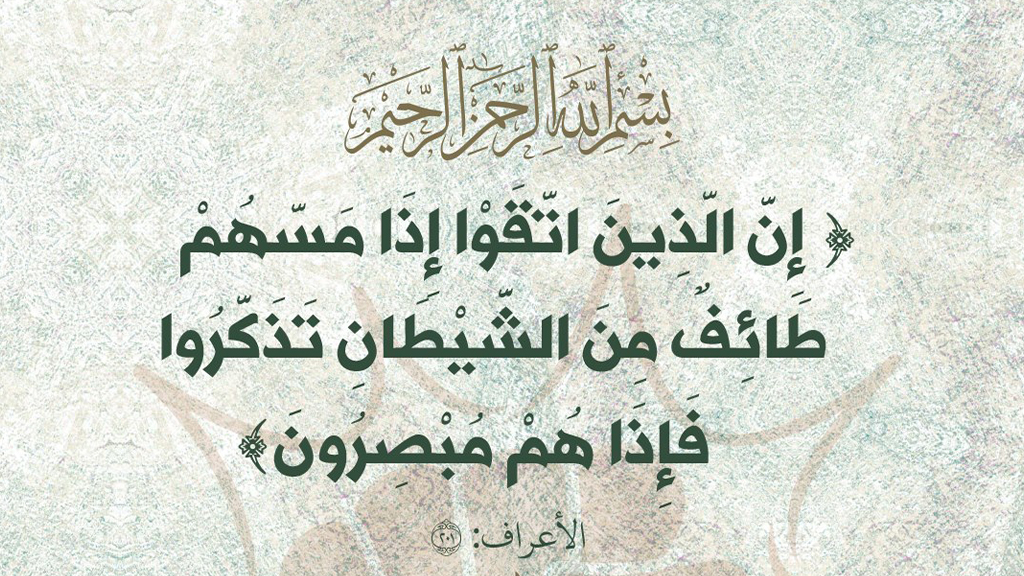 بِسْمِ اللَّهِ الرَّحْمَٰنِ الرَّحِيمِ
﴿ إِنّ الّذِينَ اتّقَوْا إِذَا مَسّهُمْ
طَائِفٌ مِنَ الشّيْطَانِ تَذَكّرُوا
فَإِذَا هُمْ مُبْصِرُونَ﴾
الأعراف: ٢٠١